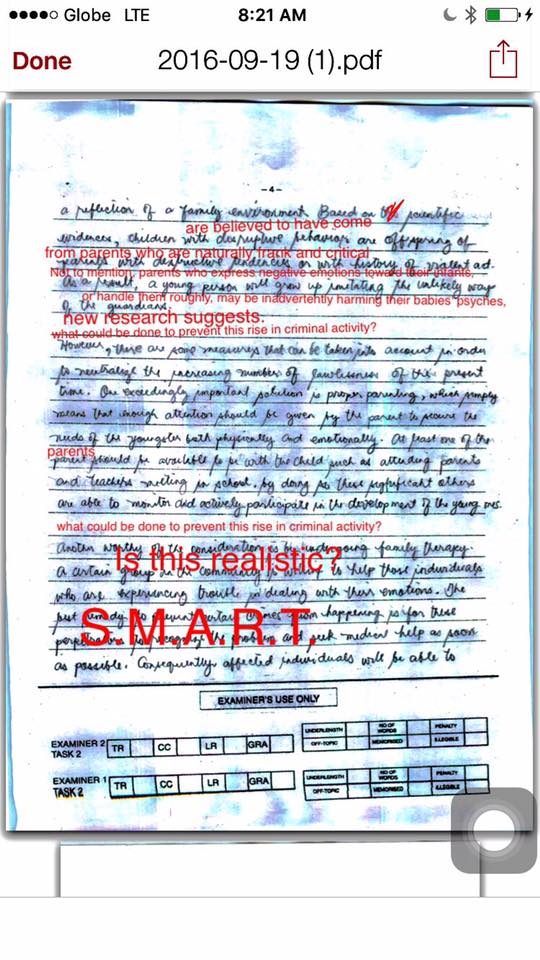 Globe LTE 8:21 AM
Done 2016-09-19 (1).pdf
-4-
a reflection of a family environment. Based on scientific
are believed to have come
evidences, children with disruptive behaviors are offspring of
from parents who are naturally frank and critical
parents with destructive tendencies or with history of violent act.
Not to mention, parents who express negative emotions toward their infants,
As a result, a young person will grow up imitating the unlikely way
or handle them roughly, may be inadvertently harming their babies' psyches,
of the guardians.
new research suggests.
what could be done to prevent this rise in criminal activity?
However, there are some measures that can be taken into account in order
to neutralize the increasing number of lawlessness of this present
time. One exceedingly important solution is proper parenting, which simply
means that enough attention should be given by the parent to secure the
needs of the youngster both physically and emotionally. At least one of the
parents
parent should be available to be with the child such as attending parents
and teachers meeting in school, by doing so these significant others
are able to monitor and actively participate in the development of the young ones.
what could be done to prevent this rise in criminal activity?
Another worthy of the consideration is by undergoing family therapy.
Is this realistic?
A certain group in the community is to help those individuals
who are experiencing trouble in dealing with these emotions. The
S.M.A.R.T.
best remedy to prevent certain crimes from happening is for these
perpetrators to recognize the problem and seek medical help as soon
as possible. Consequently, affected individuals will be able to
EXAMINER'S USE ONLY
EXAMINER 2 TASK 2 TR CC LR GRA UNDERLENGTH NO OF WORDS PENALTY
OFF-TOPIC MEMORISED ILLEGIBLE
EXAMINER 1 TASK 2 TR CC LR GRA UNDERLENGTH NO OF WORDS PENALTY
OFF-TOPIC MEMORISED ILLEGIBLE